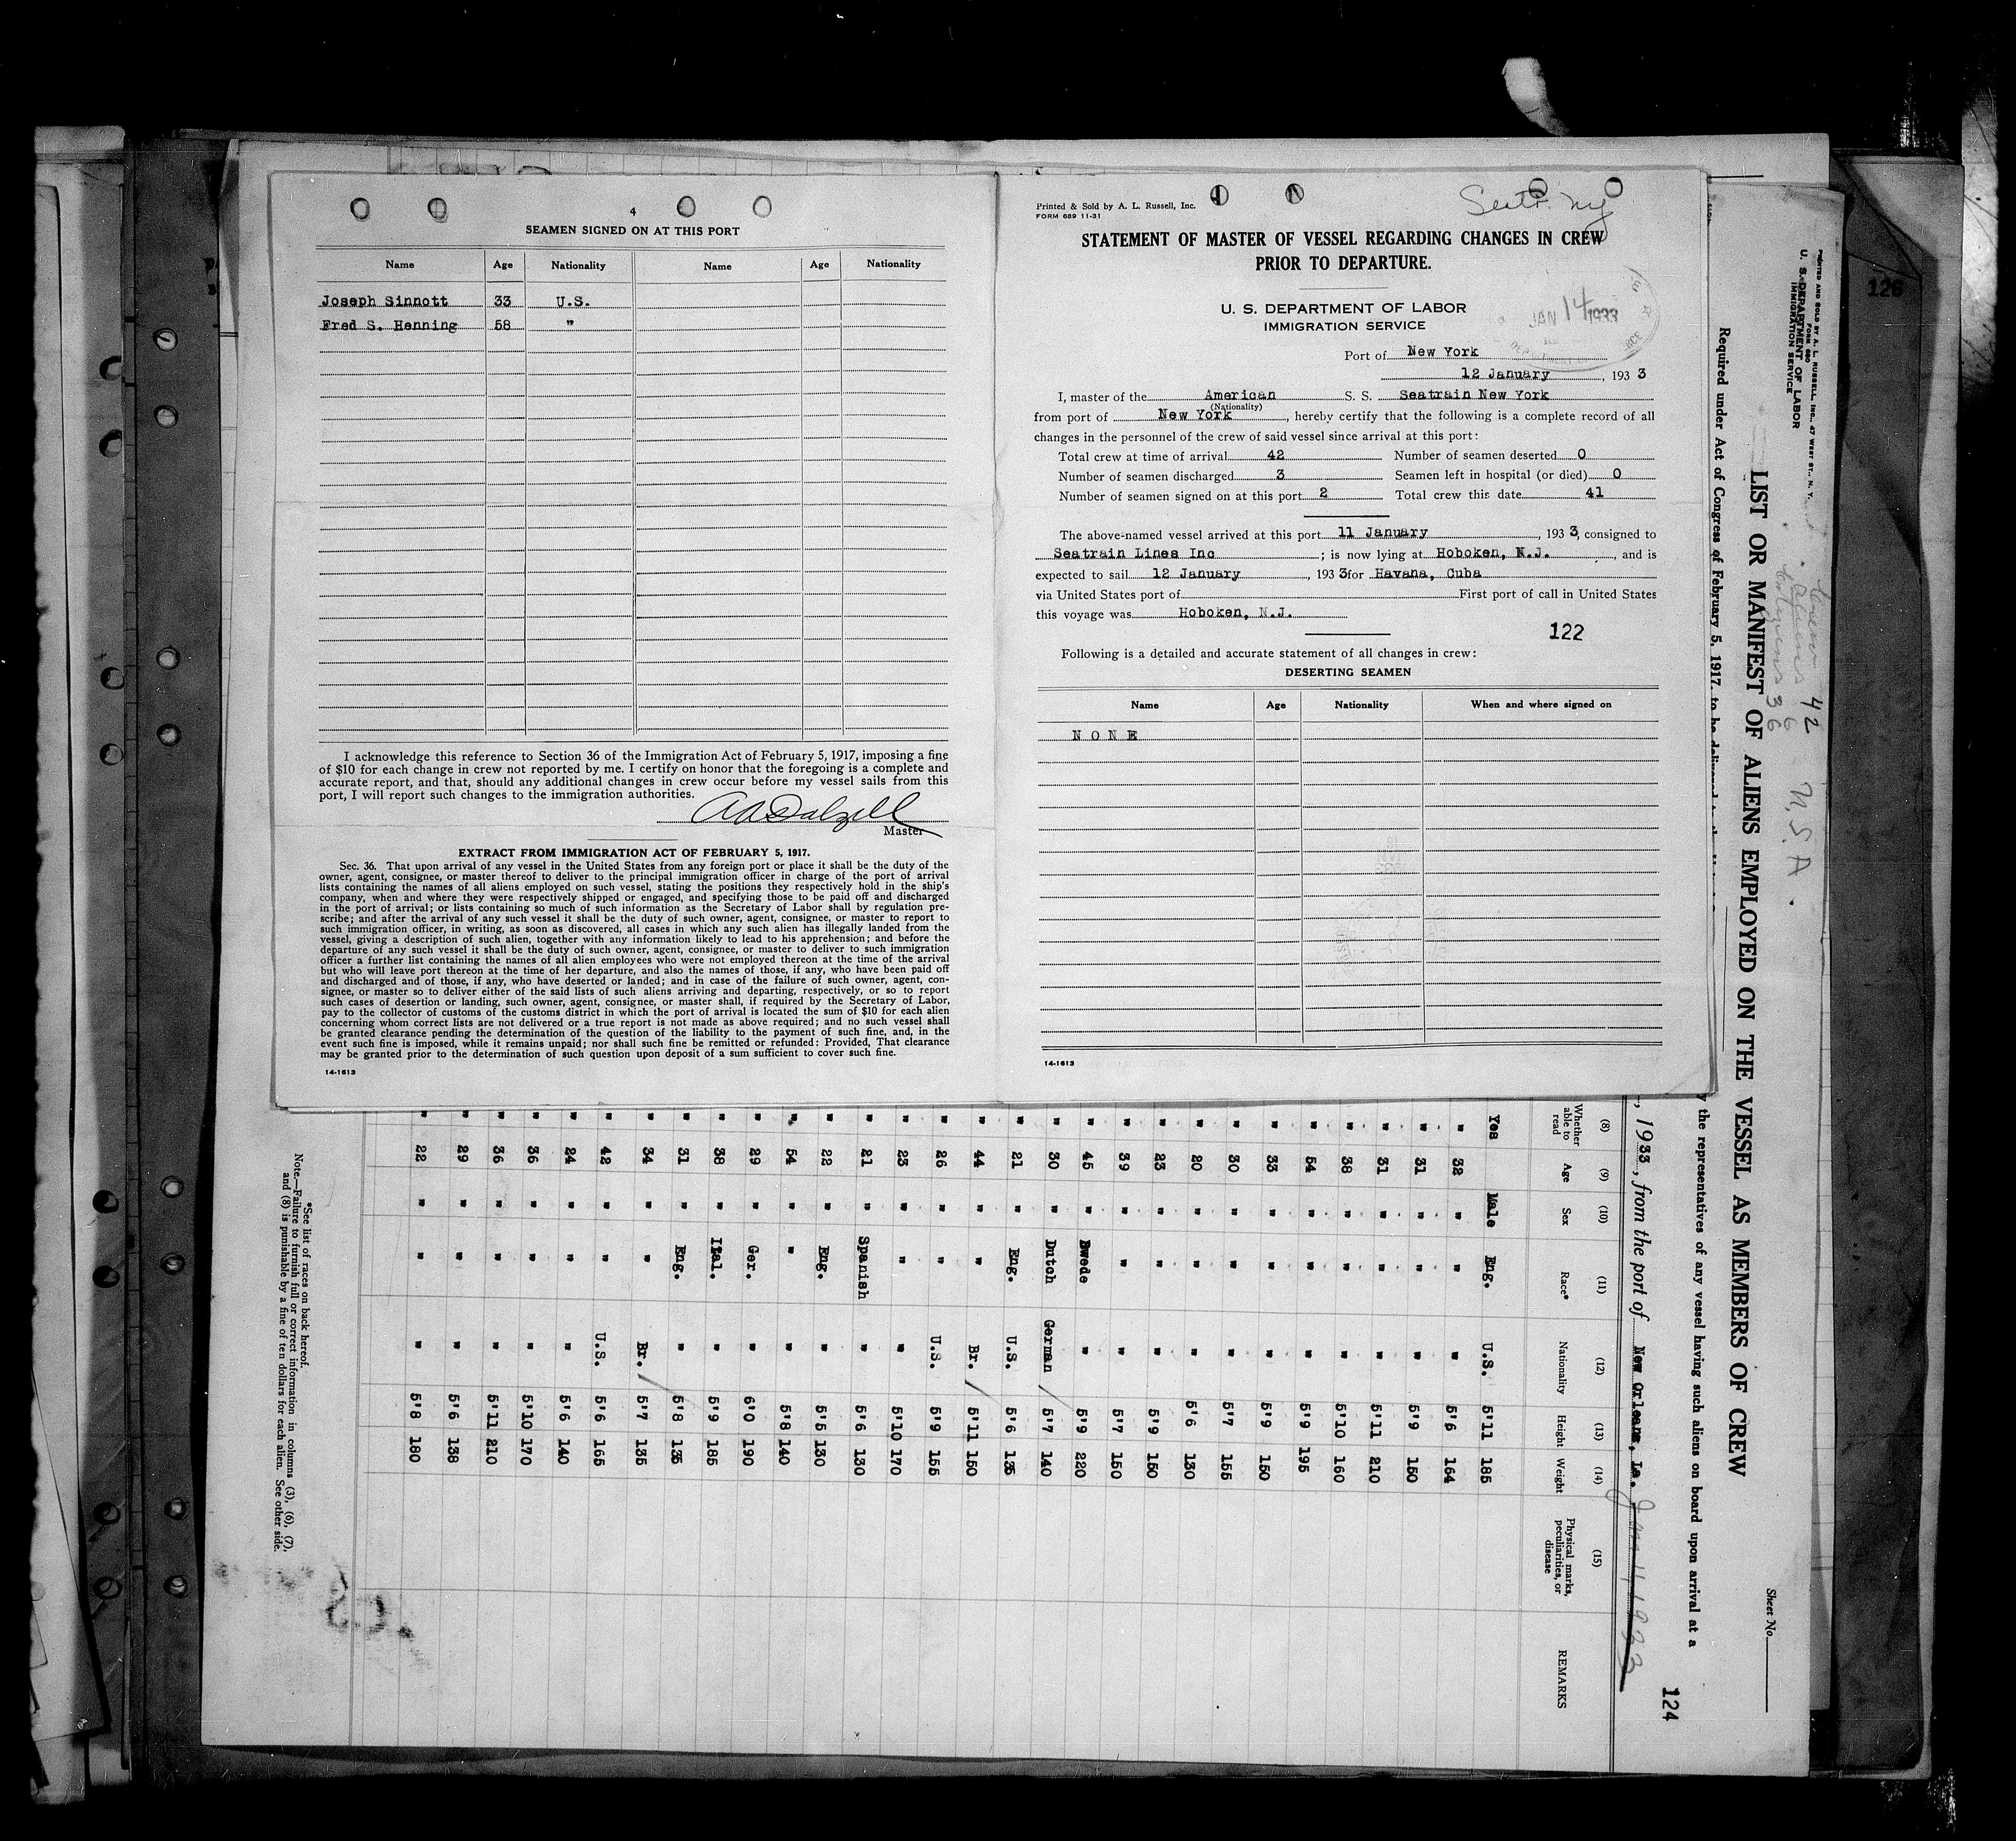 4
SEAMEN SIGNED ON AT THIS PORT
Name Age Nationality Name Age Nationality
Joseph Sinnott 33 U.S.
Fred S. Henning 58 "
I acknowledge this reference to Section 36 of the Immigration Act of February 5, 1917, imposing a fine
of $10 for each change in crew not reported by me. I certify on honor that the foregoing is a complete and
accurate report, and that, should any additional changes in crew occur before my vessel sails from this
port, I will report such changes to the immigration authorities.
Master
EXTRACT FROM IMMIGRATION ACT OF FEBRUARY 5, 1917.
Sec. 36. That upon arrival of any vessel in the United States from any foreign port or place it shall be the duty of the
owner, agent, consignee, or master thereof to deliver to the principal immigration officer in charge of the port of arrival
lists containing the names of all aliens employed on such vessel, stating the positions they respectively hold in the ship's
company, when and where they were respectively shipped or engaged, and specifying those to be paid off and discharged
in the port of arrival; or lists containing so much of such information as the Secretary of Labor shall by regulation pre-
scribe; and after the arrival of any such vessel it shall be the duty of such owner, agent, consignee, or master to report to
such immigration officer, in writing, as soon as discovered, all cases in which any such alien has illegally landed from the
vessel, giving a description of such alien, together with any information likely to lead to his apprehension; and before the
departure of any such vessel it shall be the duty of such owner, agent, consignee, or master to deliver to such immigration
officer a further list containing the names of all alien employees who were not employed thereon at the time of the arrival
but who will leave port thereon at the time of her departure, and also the names of those, if any, who have been paid off
and discharged and of those, if any, who have deserted or landed; and in case of the failure of such owner, agent, con-
signee, or master so to deliver either of the said lists of such aliens arriving and departing, respectively, or so to report
such cases of desertion or landing, such owner, agent, consignee, or master shall, if required by the Secretary of Labor,
pay to the collector of customs of the customs district in which the port of arrival is located the sum of $10 for each alien
concerning whom correct lists are not delivered or a true report is not made as above required; and no such vessel shall
be granted clearance pending the determination of the question of the liability to the payment of such fine, and, in the
event such fine is imposed, while it remains unpaid; nor shall such fine be remitted or refunded: Provided, That clearance
may be granted prior to the determination of such question upon deposit of a sum sufficient to cover such fine.
14-1613
Printed & Sold by A. L. Russell, Inc.
FORM 689 11-31
Seatr. Ny
STATEMENT OF MASTER OF VESSEL REGARDING CHANGES IN CREW
PRIOR TO DEPARTURE.
U. S. DEPARTMENT OF LABOR
IMMIGRATION SERVICE
JAN 14 1933
Port of New York
12 January, 1933
I, master of the American S. S. Seatrain New York
(Nationality)
from port of New York, hereby certify that the following is a complete record of all
changes in the personnel of the crew of said vessel since arrival at this port:
Total crew at time of arrival 42 Number of seamen deserted 0
Number of seamen discharged 3 Seamen left in hospital (or died) 0
Number of seamen signed on at this port 2 Total crew this date 41
The above-named vessel arrived at this port 11 January, 1933, consigned to
Seatrain Lines Inc ; is now lying at Hoboken, N.J., and is
expected to sail 12 January, 1933 for Havana, Cuba
via United States port of First port of call in United States
this voyage was Hoboken, N.J.
122
Following is a detailed and accurate statement of all changes in crew:
DESERTING SEAMEN
Name Age Nationality When and where signed on
N O N E
14-1613
126
PRINTED AND SOLD BY A. L. RUSSELL, INC., 47 WEST ST., N. Y.
FORM 680
U. S. DEPARTMENT OF LABOR
IMMIGRATION SERVICE
42
Aliens 6
Citizens 36
U.S.A.
LIST OR MANIFEST OF ALIENS EMPLOYED ON THE VESSEL AS MEMBERS OF CREW
Sheet No.
Required under Act of Congress of February 5, 1917, to be delivered
y the representatives of any vessel having such aliens on board upon arrival at a
124
, 1933, from the port of New Orleans, La. Jan 11, 1933
(8) (9) (10) (11) (12) (13) (14) (15)
Whether able to read Age Sex Race* Nationality Height Weight Physical marks, peculiarities, or disease REMARKS
Yes Male Eng. U.S. 5'11 185
" 32 " " " 5'6 164
" 31 " " " 5'9 150
" 31 " " " 5'11 210
" 38 " " " 5'10 160
" 54 " " " 5'9 195
" 33 " " " 5'9 150
" 30 " " " 5'7 155
" 20 " " " 5'6 130
" 23 " " " 5'9 150
" 39 " " " 5'7 150
" 45 " Swede " 5'9 220
" 30 " Dutch German 5'7 140
" 21 " Eng. U.S. 5'6 135
" 44 " " Br. 5'11 150
" 26 " " U.S. 5'9 155
" 23 " " " 5'10 170
" 21 " Spanish " 5'6 130
" 22 " Eng. " 5'5 130
" 54 " " " 5'8 140
" 29 " Ger. " 6'0 190
" 38 " Ital. " 5'9 185
" 31 " Eng. " 5'8 135
" 34 " " Br. 5'7 135
" 42 " " U.S. 5'6 165
" 24 " " " 5'6 140
" 36 " " " 5'10 170
" 36 " " " 5'11 210
" 29 " " " 5'6 138
" 22 " " " 5'8 180
*See list of races on back hereof.
Note.—Failure to furnish full or correct information in columns (3), (6), (7),
and (8) is punishable by a fine of ten dollars for each alien. See other side.